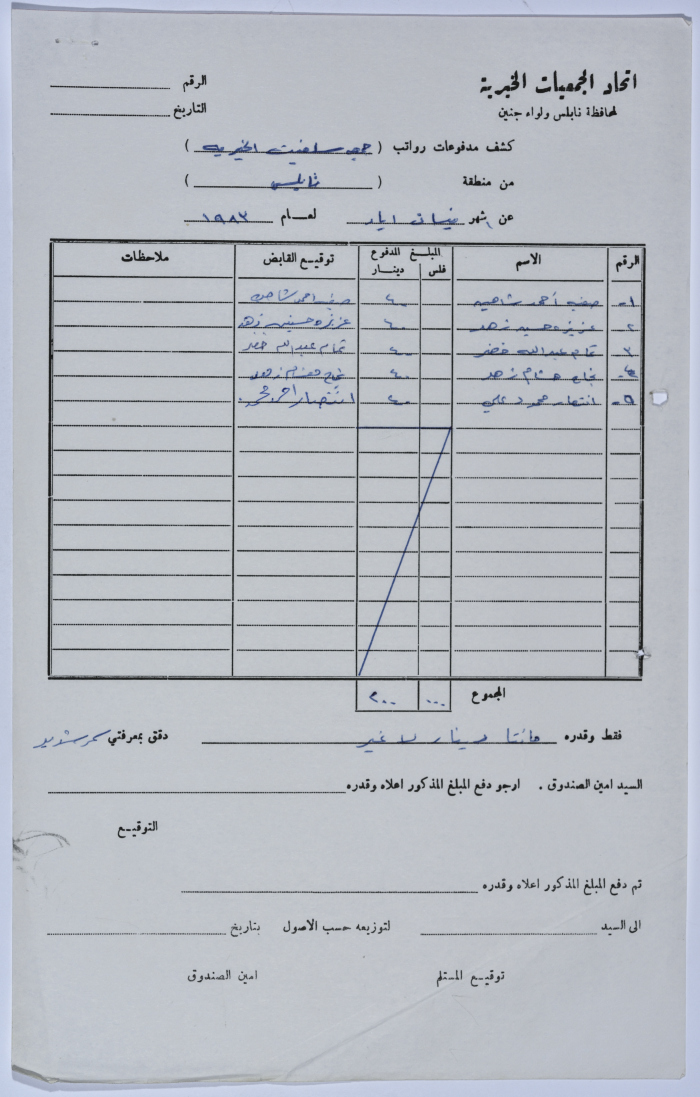 اتحاد الجمعيات الخيرية
لمحافظة نابلس ولواء جنين
الرقم
التاريخ
كشف مدفوعات رواتب ( جمعية سلفيت الخيريه )
من منطقة ( نابلس )
عن شهر نيسان ايار لعـام ١٩٨٣
الرقم الاسم المبلغ المدفوع توقيع القابض ملاحظات
فلس دينار
١- صفيه أحمد شاهين ٤٠ صفيه احمد شاهين
٢- عزيزه حسين زهد ٤٠ عزيزه حسين زهد
٣- تمام عبدالله خضر ٤٠ تمام عبدالله خضر
٤- نجاح هشام زهد ٤٠ نجاح هشام زهد
٥- انتصار محمود علي ٤٠ انتصار
المجموع ٠٠٠ ٢٠٠
فقط وقدره مائتا دينار لا غير دقق بمعرفتي سمر
السيد امين الصندوق . ارجو دفع المبلغ المذكور اعلاه وقدره
التوقيـع
تم دفع المبلغ المذكور اعلاه وقدره
الى السيد لتوزيعه حسب الاصول بتاريخ
توقيـع المستلم امين الصندوق